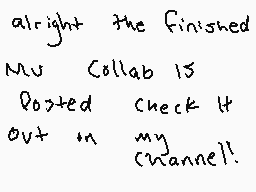 alright the finished
MV Collab is
Posted check it
out on my
channel!